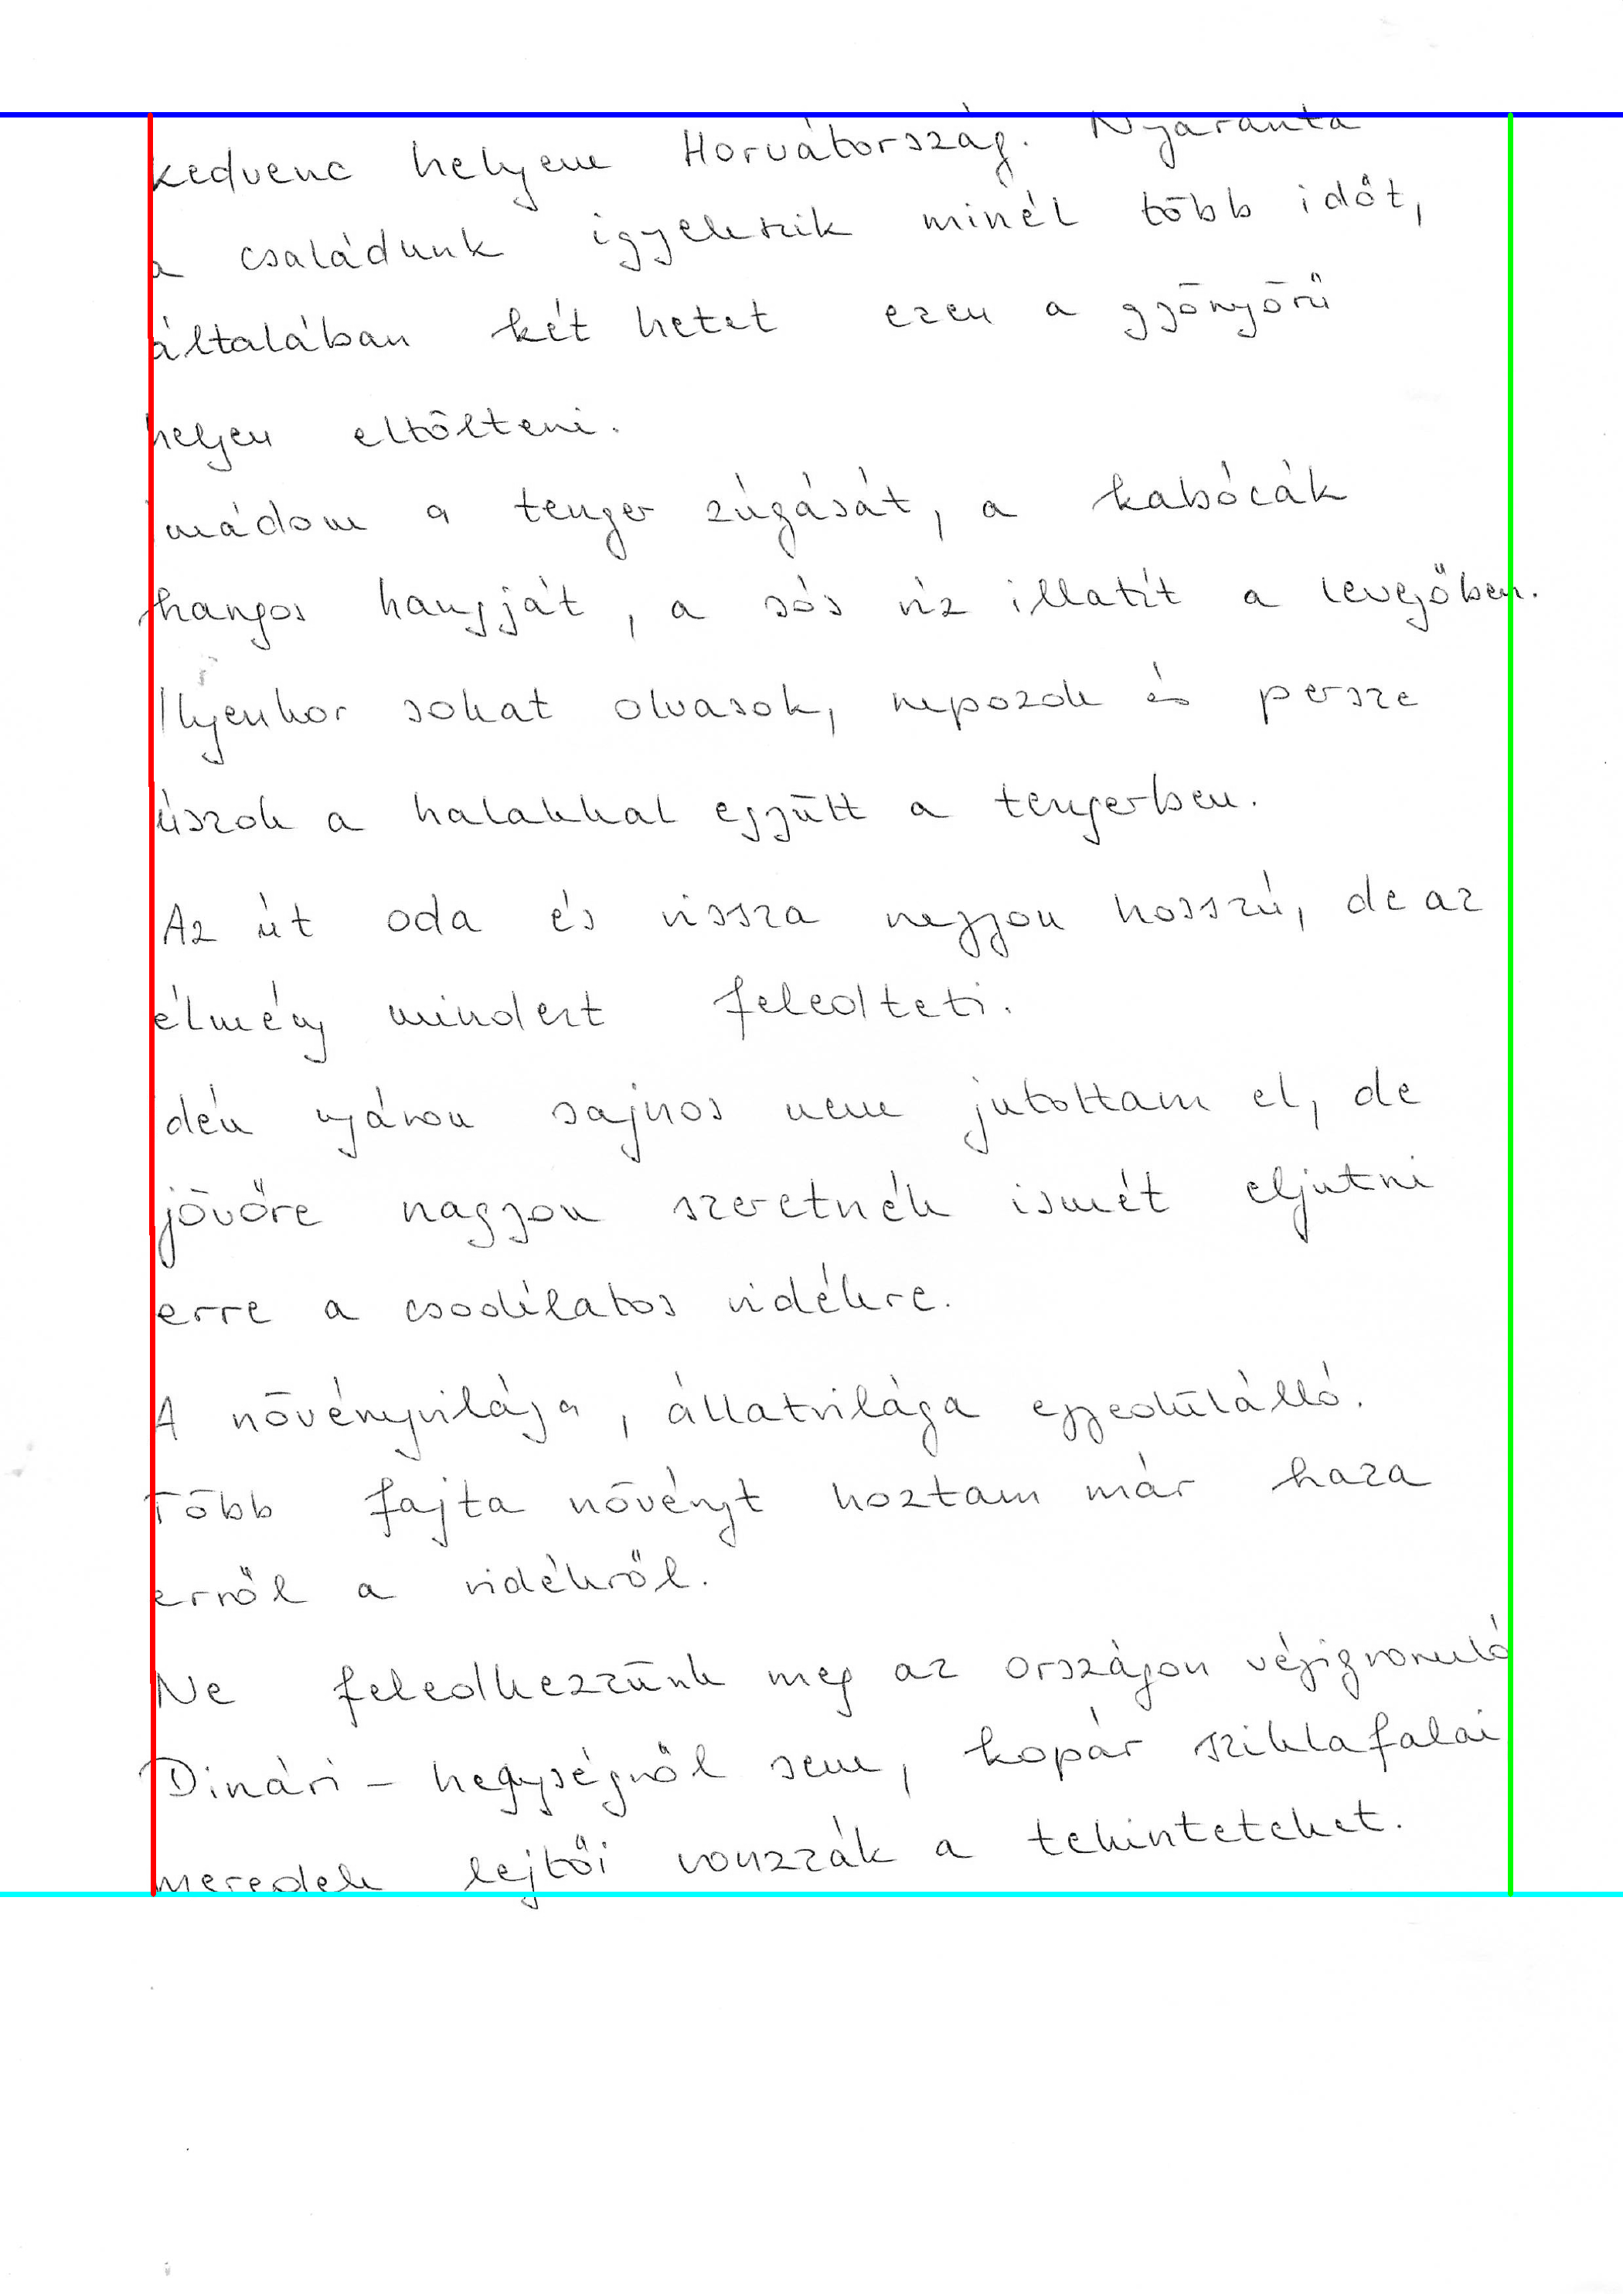 kedvenc helyem Horvátország. Nyaranta
a családunk igyekszik minél több időt,
általában két hetet ezen a gyönyörű
helyen eltölteni.
imádom a tenger zúgását, a kabócák
hangos hangját, a sós víz illatát a levegőben.
Ilyenkor sokat olvasok, napozok és persze
úszok a halakkal együtt a tengerben.
Az út oda és vissza nagyon hosszú, de az
élmény mindezt feledteti.
idén nyáron sajnos nem jutottam el, de
jövőre nagyon szeretnék ismét eljutni
erre a csodálatos vidékre.
A növényvilága, állatvilága egyedülálló.
Több fajta növényt hoztam már haza
erről a vidékről.
Ne feledkezzünk meg az országon végigvonuló
Dinári-hegységről sem, kopár sziklafalai
meredek lejtői vonzzák a tekinteteket.